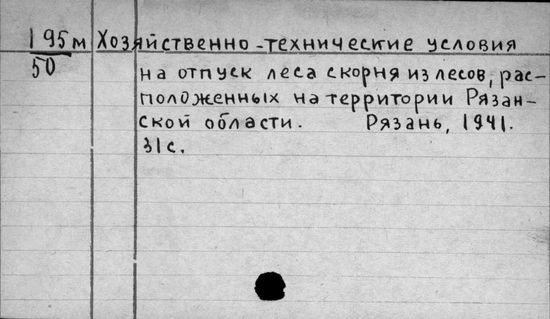 195м Хозяйственно-технические условия
50 на отпуск леса с корня из лесов, рас-
положенных на территории Рязан-
ской области. Рязань, 1941.
31с.